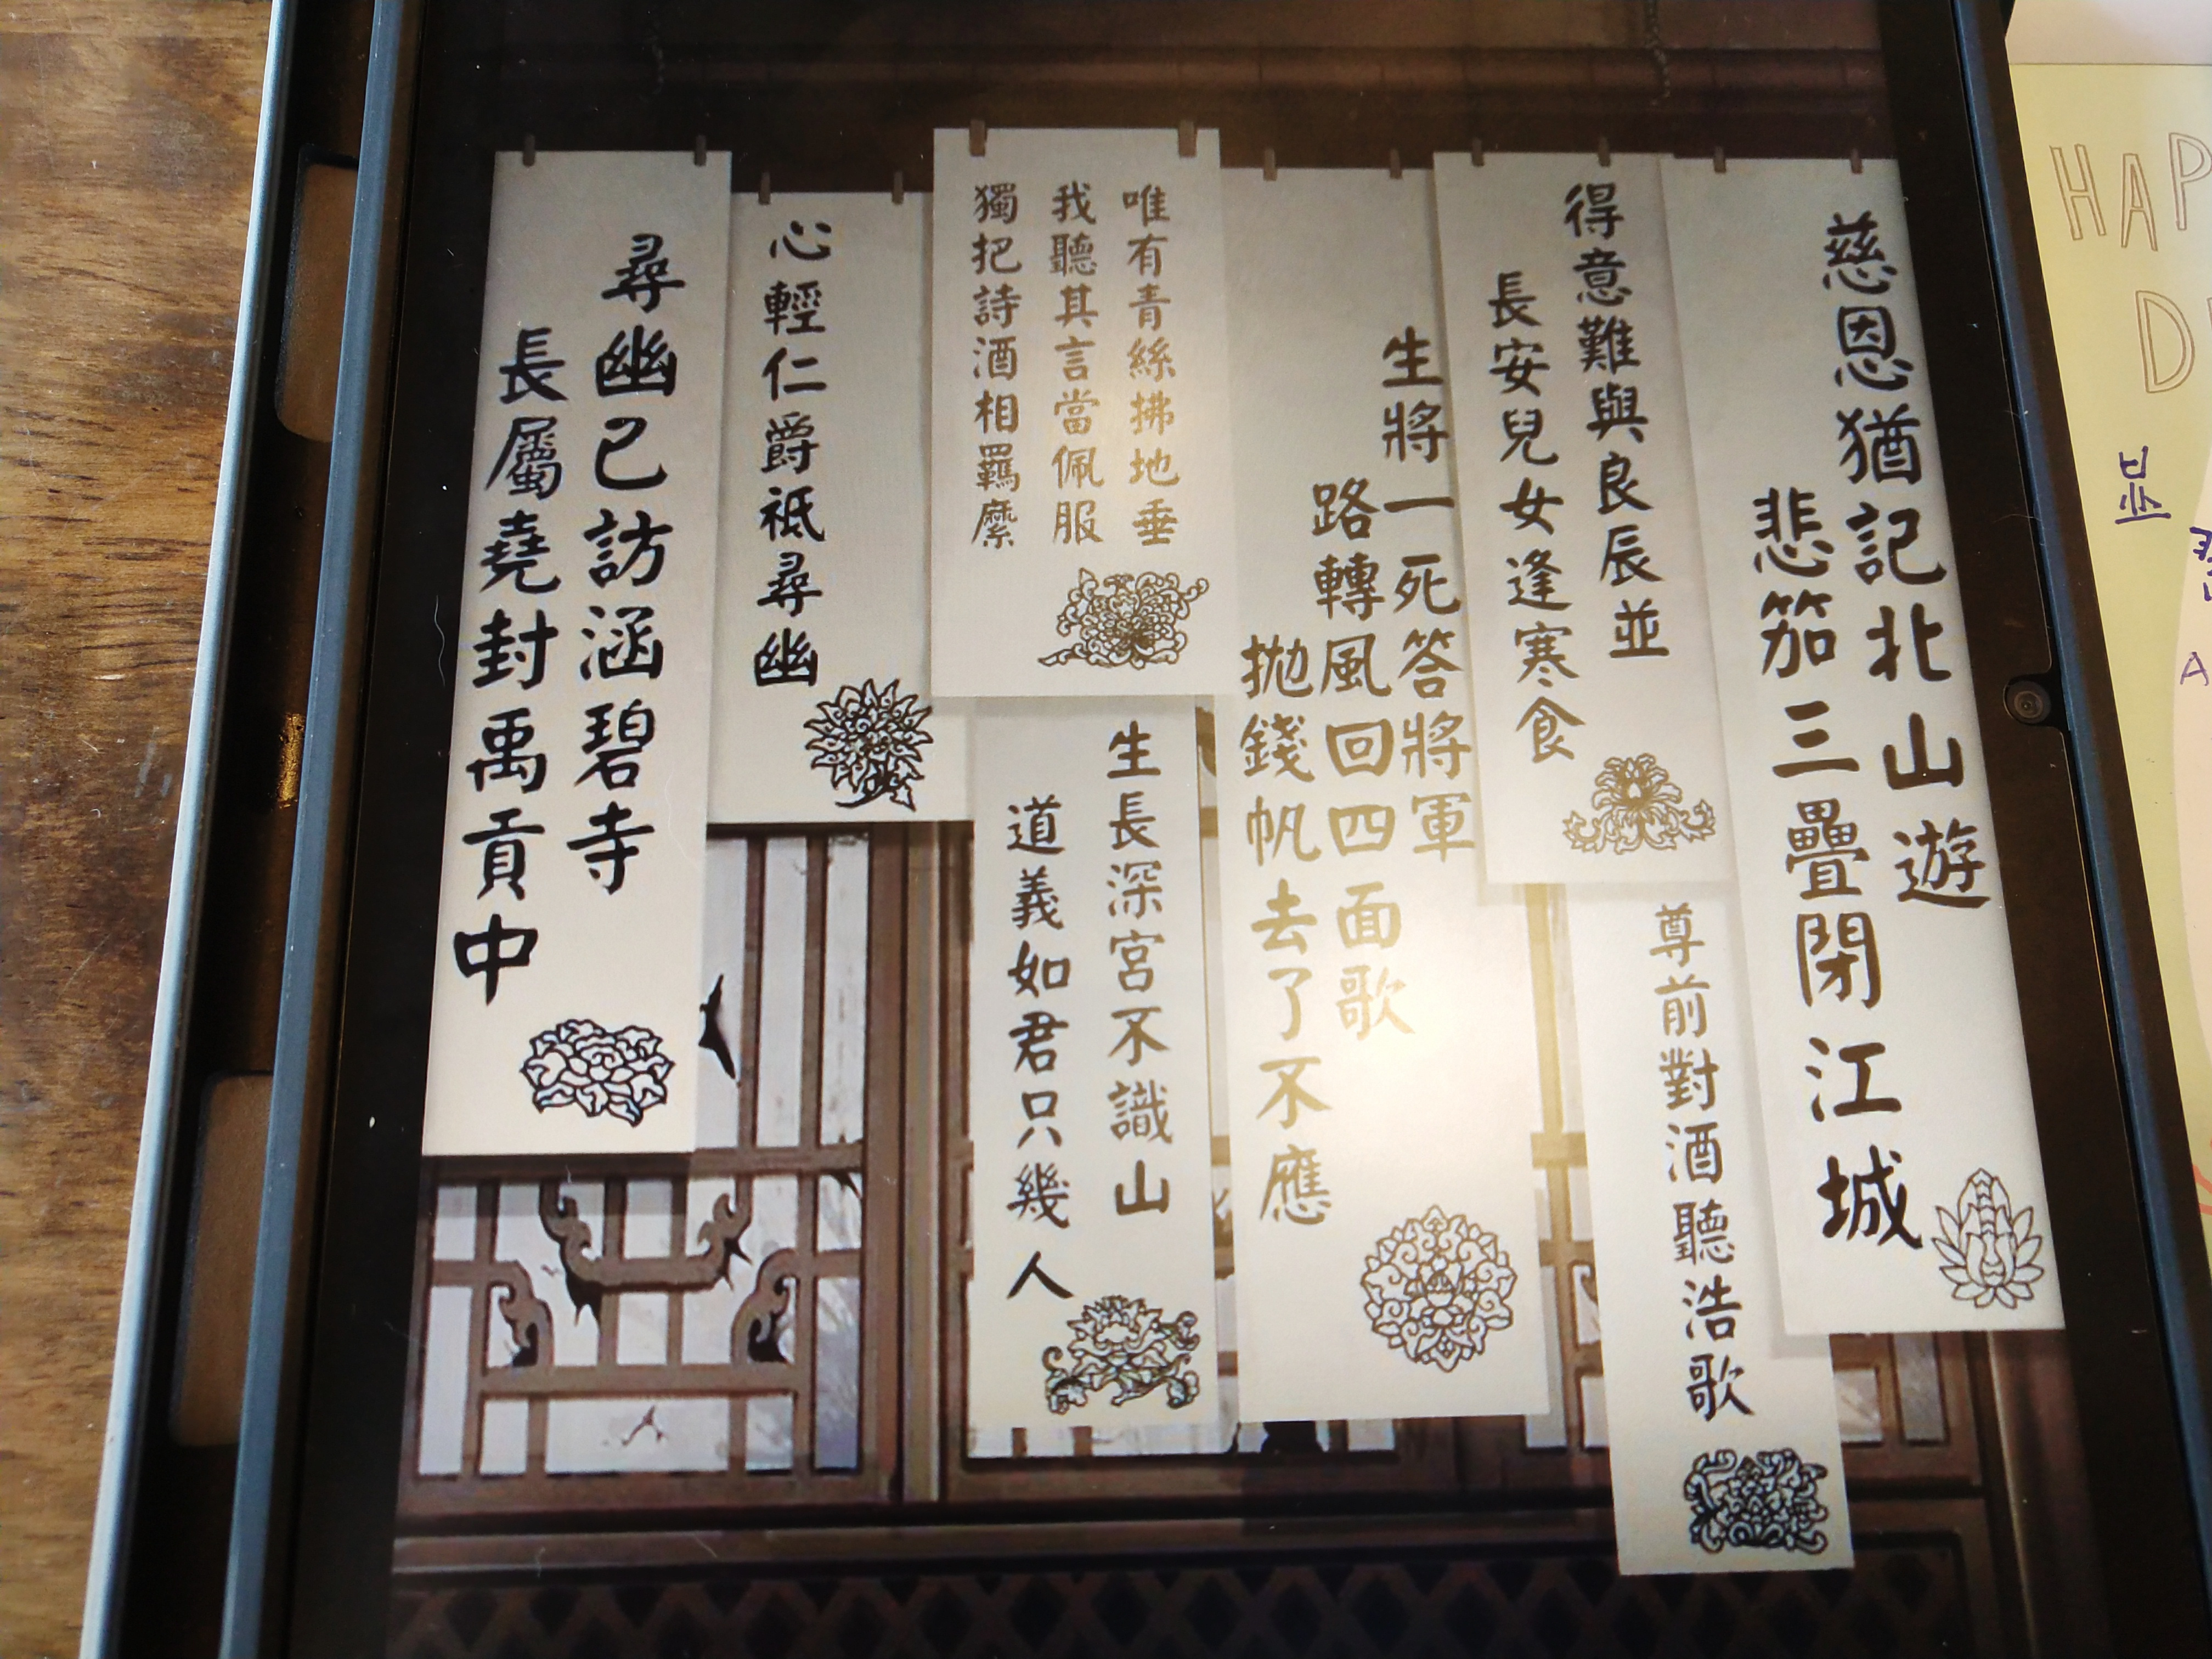 慈恩猶記北山遊
悲笳三疊閉江城
得意難與良辰並
長安兒女逢寒食
尊前對酒聽浩歌
生將一死答將軍
路轉風回四面歌
拋錢帆去了不應
唯有青絲拂地垂
我聽其言當佩服
獨把詩酒相羈縻
生長深宮不識山
道義如君只幾人
心輕仁爵祇尋幽
尋幽已訪涵碧寺
長屬堯封禹貢中
HAP
D
A